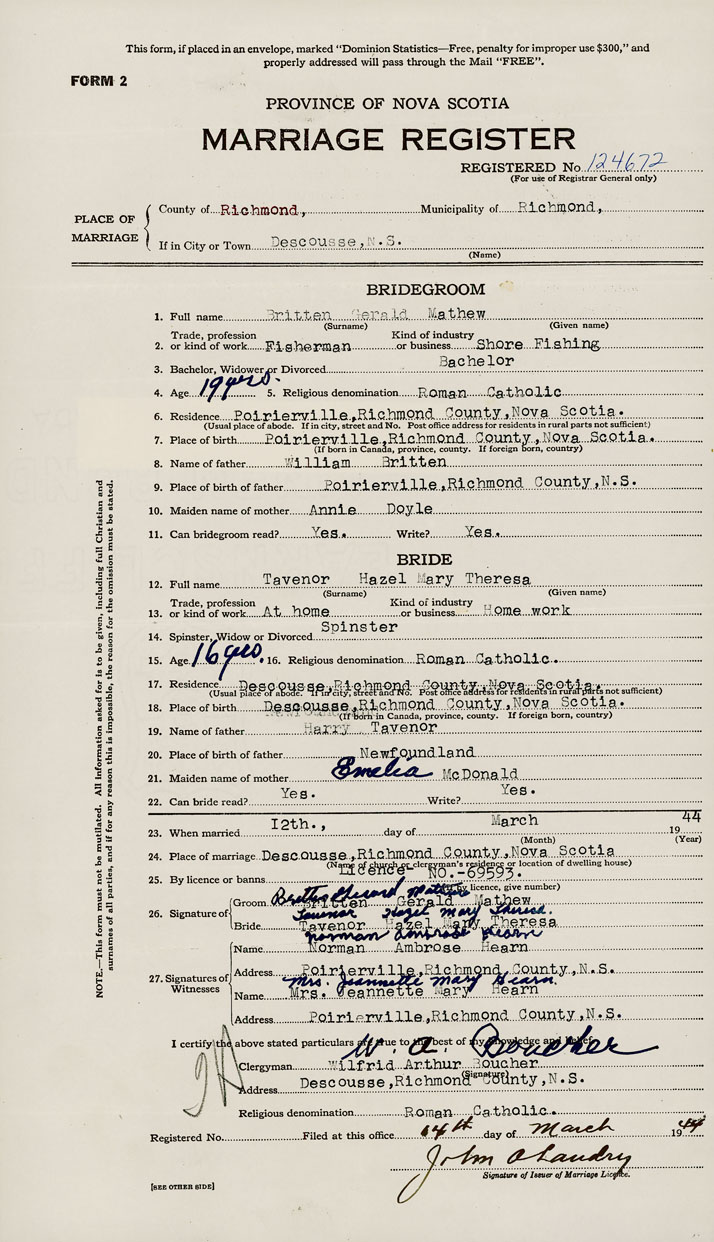 This form, if placed in an envelope, marked "Dominion Statistics—Free, penalty for improper use $300," and
properly addressed will pass through the Mail "FREE".
FORM 2
PROVINCE OF NOVA SCOTIA
MARRIAGE REGISTER
REGISTERED No 124672
(For use of Registrar General only)
PLACE OF MARRIAGE
County of Richmond, Municipality of Richmond,
If in City or Town Descousse,N.S.
(Name)
BRIDEGROOM
1. Full name Britten Gerald Mathew
(Surname) (Given name)
Trade, profession Kind of industry
2. or kind of work Fisherman or business Shore Fishing
3. Bachelor, Widower or Divorced Bachelor
4. Age 19 yrs. 5. Religious denomination Roman Catholic
6. Residence Poirierville,Richmond County,Nova Scotia.
(Usual place of abode. If in city, street and No. Post office address for residents in rural parts not sufficient)
7. Place of birth Poirierville,Richmond County,Nova Scotia.
(If born in Canada, province, county. If foreign born, country)
8. Name of father William Britten
9. Place of birth of father Poirierville,Richmond County,N.S.
10. Maiden name of mother Annie Doyle
11. Can bridegroom read? Yes. Write? Yes.
BRIDE
12. Full name Tavenor Hazel Mary Theresa
(Surname) (Given name)
Trade, profession Kind of industry
13. or kind of work At home or business Home work
14. Spinster, Widow or Divorced Spinster
15. Age 16 yrs. 16. Religious denomination Roman Catholic.
17. Residence Descousse,Richmond County,Nova Scotia.
(Usual place of abode. If in city, street and No. Post office address for residents in rural parts not sufficient)
18. Place of birth Descousse,Richmond County,Nova Scotia.
(If born in Canada, province, county. If foreign born, country)
19. Name of father Harry Tavenor
20. Place of birth of father Newfoundland
21. Maiden name of mother Emelia McDonald
22. Can bride read? Yes. Write? Yes.
23. When married I2th., day of March 19 44
(Month) (Year)
24. Place of marriage Descousse,Richmond County,Nova Scotia
(Name of church or clergyman's residence or location of dwelling house)
25. By licence or banns Licence- NO.-69593.
(If by licence, give number)
26. Signature of
Groom Britten Gerald Mathew
Tavenor Hazel Mary Theresa.
Bride Tavenor Hazel Mary Theresa
Norman Ambrose Hearn
27. Signatures of Witnesses
Name Norman Ambrose Hearn
Address Poirierville,Richmond County,N.S.
Mrs. Jeannette Mary Hearn.
Name Mrs. Jeannette Mary Hearn
Address Poirierville,Richmond County,N.S.
I certify the above stated particulars are true to the best of my knowledge and belief.
W. A. Boucher
Clergyman Wilfrid Arthur Boucher
(Signature)
Address Descousse,Richmond County,N.S.
Religious denomination Roman Catholic.
Registered No. Filed at this office 14th day of March 1944
Signature of Issuer of Marriage Licence.
[SEE OTHER SIDE]
NOTE.—This form must not be mutilated. All information asked for is to be given, including full Christian and
surnames of all parties, and if for any reason this is impossible, the reason for the omission must be stated.